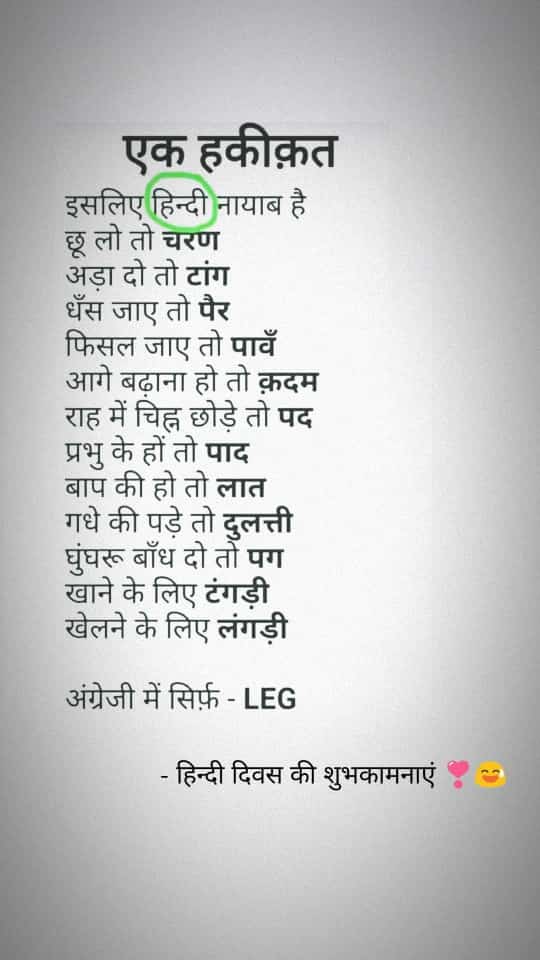 एक हकीक़त
इसलिए हिन्दी नायाब है
छू लो तो चरण
अड़ा दो तो टांग
धँस जाए तो पैर
फिसल जाए तो पावँ
आगे बढ़ाना हो तो क़दम
राह में चिह्न छोड़े तो पद
प्रभु के हों तो पाद
बाप की हो तो लात
गधे की पड़े तो दुलत्ती
घुंघरू बाँध दो तो पग
खाने के लिए टंगड़ी
खेलने के लिए लंगड़ी
अंग्रेजी में सिर्फ़ - LEG
- हिन्दी दिवस की शुभकामनाएं ❣️😅